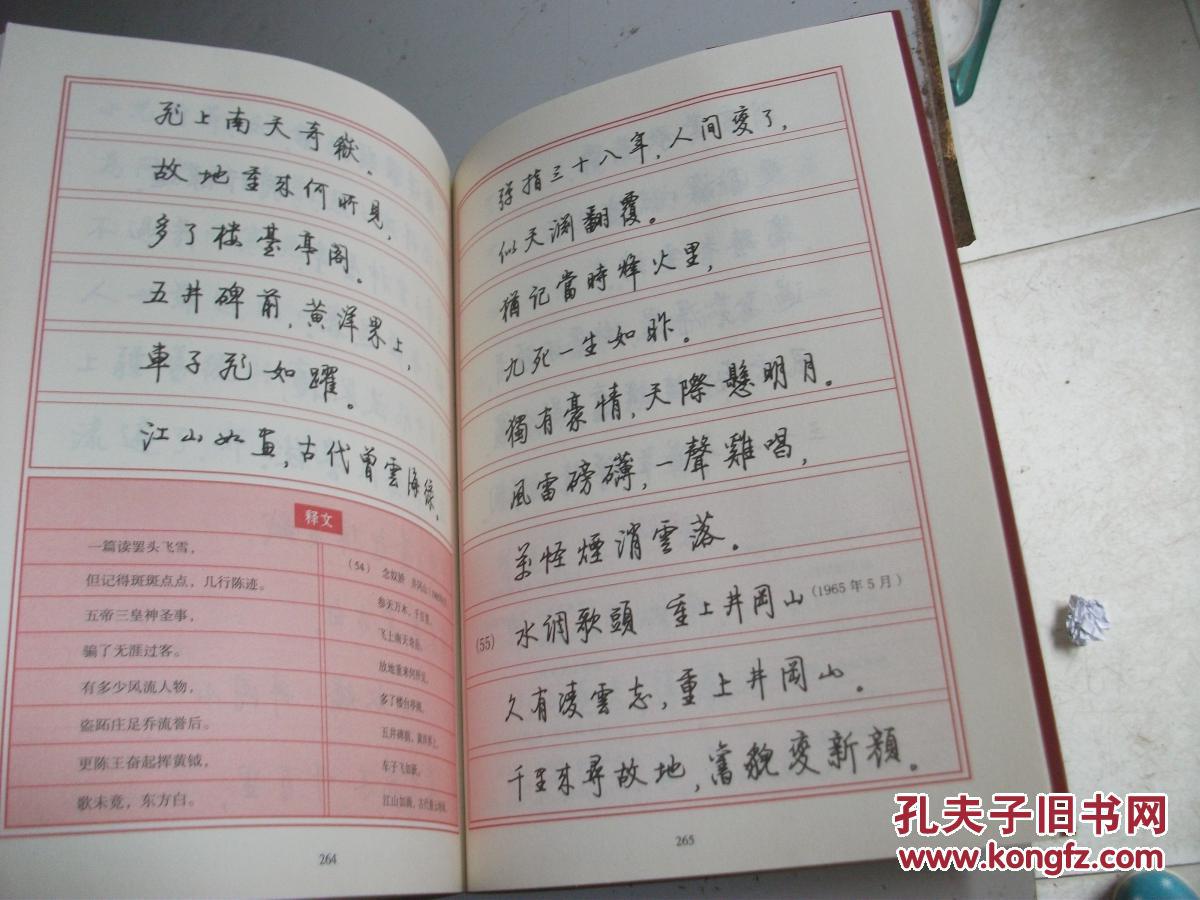 飛上南天奇嶽。
故地重來何所見,
多了楼臺亭阁。
五井碑前,黄洋界上,
車子飛如躍。
江山如畫,古代曾雲海綠。
释文
一篇读罢头飞雪,
但记得斑斑点点,几行陈迹。
五帝三皇神圣事,
骗了无涯过客。
有多少风流人物,
盗跖庄足乔流誉后。
更陈王奋起挥黄钺,
歌未竟,东方白。
(54) 念奴娇 井冈山
参天万木,千百里,
飞上南天奇岳。
故地重来何所见,
多了楼台亭阁。
五井碑前,黄洋界上,
车子飞如跃。
江山如画,古代曾云海绿。
264
弹指三十八年,人间變了,
似天渊翻覆。
猶记當時烽火里,
九死一生如昨。
獨有豪情,天際懸明月。
風雷磅礴,一聲雞唱,
萬怪煙消雲落。
(55) 水调歌頭 重上井岡山(1965年5月)
久有凌雲志,重上井岡山。
千里來尋故地,舊貌變新顏。
265
孔夫子旧书网
www.kongfz.com